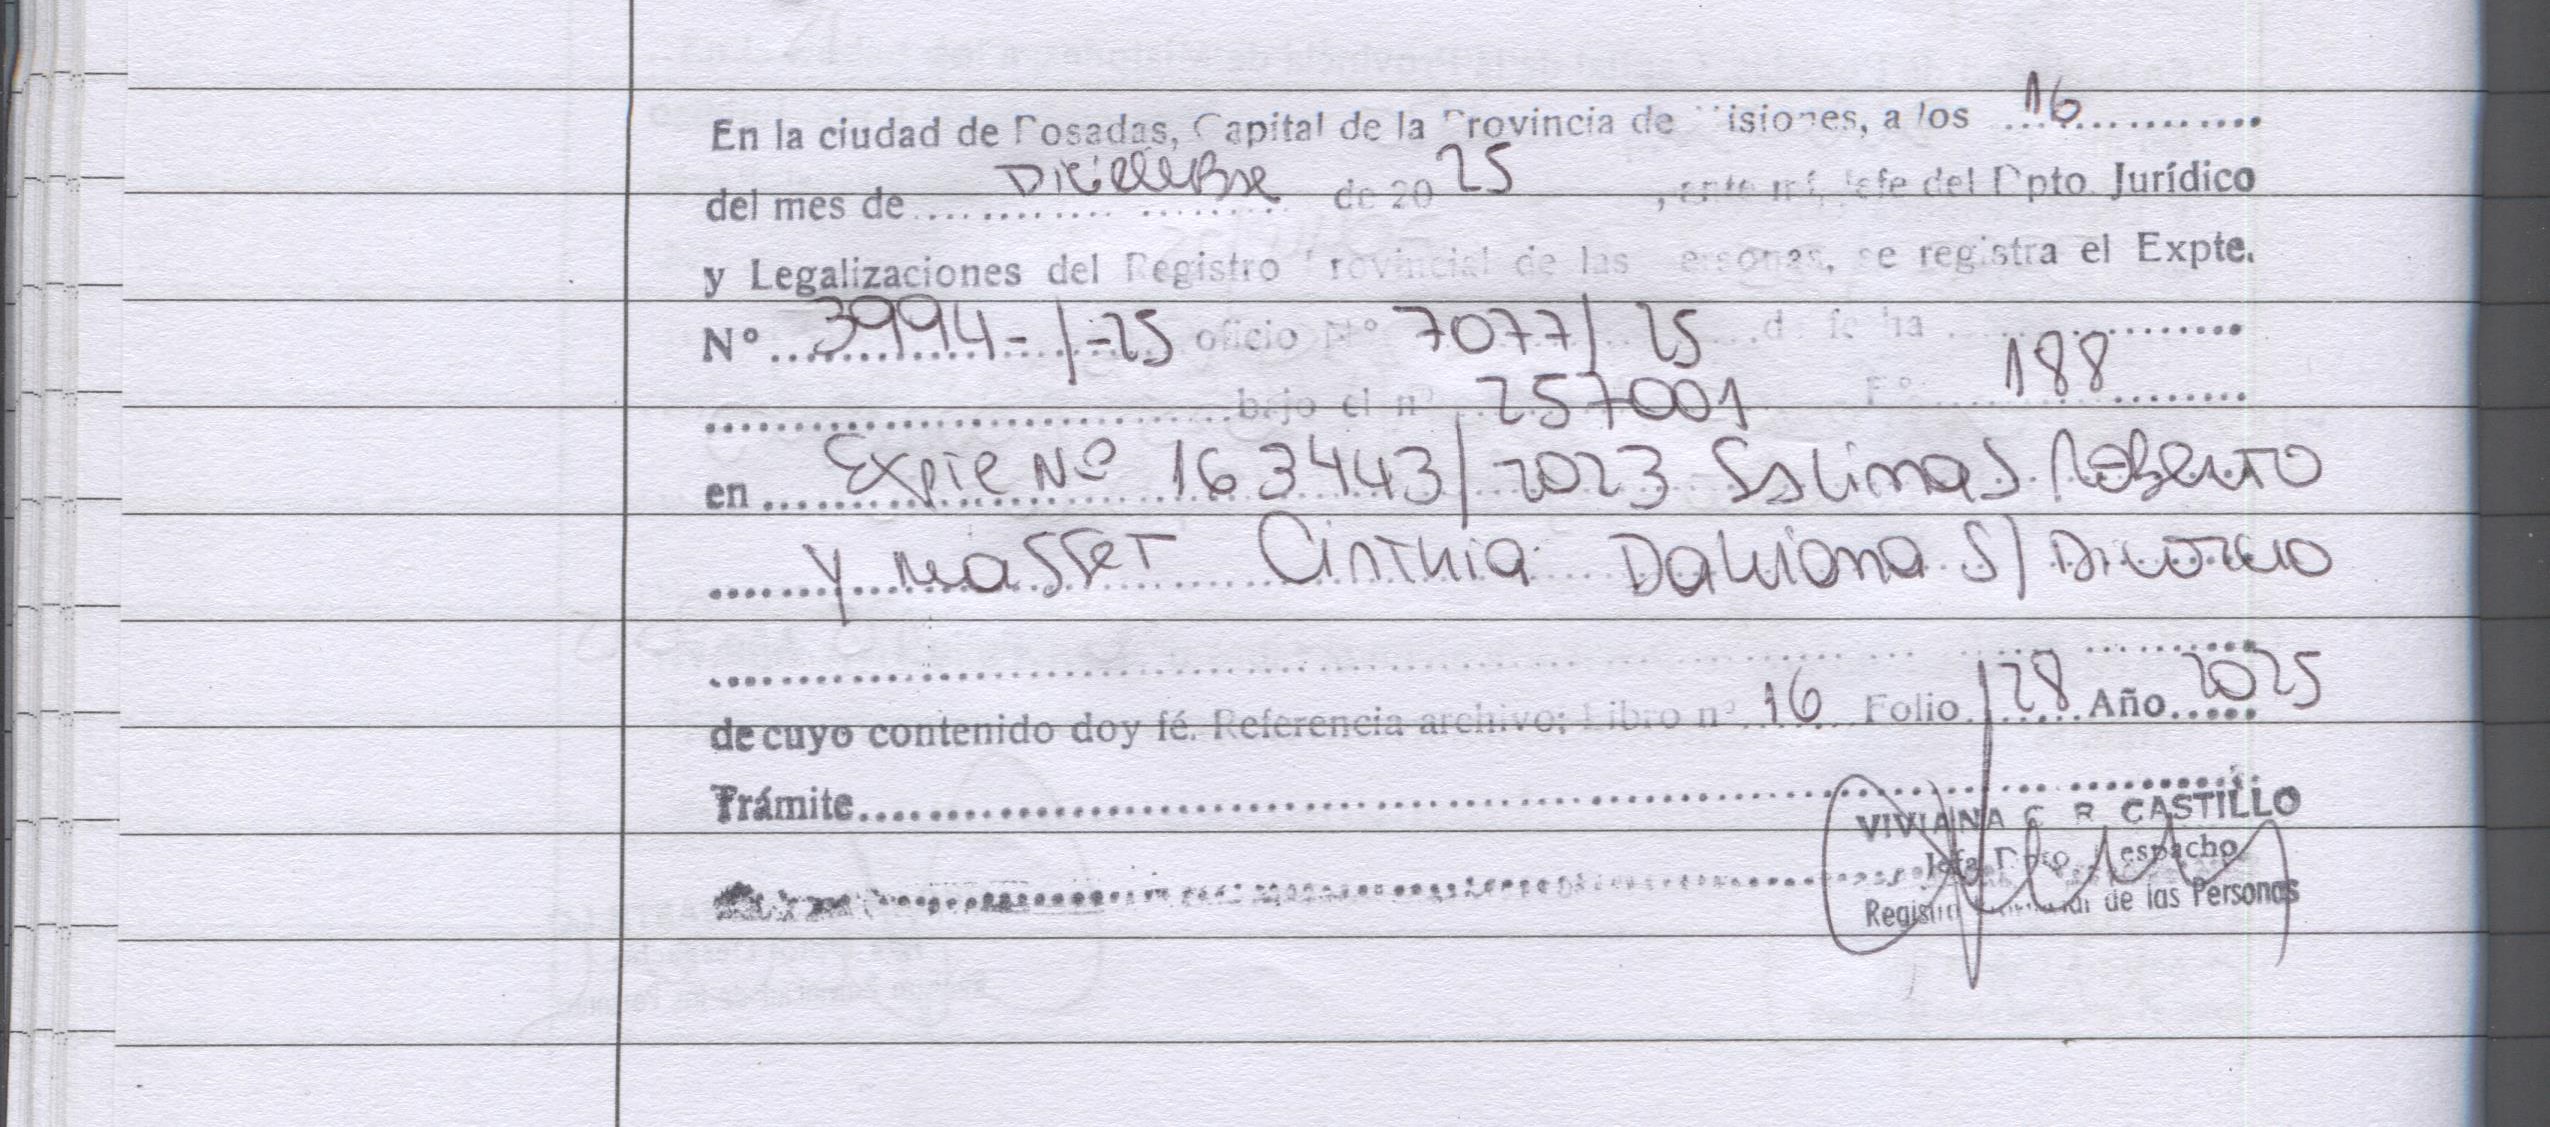 En la ciudad de Posadas, Capital de la Provincia de Misiones, a los 16
del mes de Diciembre de 20 25, ante mí, Jefe del Dpto. Jurídico
y Legalizaciones del Registro Provincial de las Personas, se registra el Expte.
Nº 3994-1-25 oficio Nº 7077/25 de fecha
bajo el nº 257001 Fº 188
en Expte Nº 163443/2023 Salinas Roberto
y Masset Cinthia Dahiana S/ Divorcio
de cuyo contenido doy fé. Referencia archivo: Libro nº 16 Folio 128 Año 2025
Trámite
VIVIANA C R CASTILLO
Jefa Dpto Despacho
Registro Provincial de las Personas